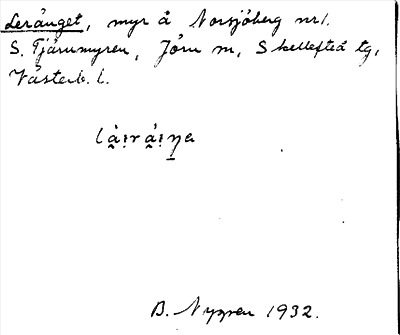 Leränget, myr å Norsjöberg nr 1.
S. Tjärnmyren, Jörn sn, Skellefteå tg,
Västerb. l.
B. Nygren 1932.